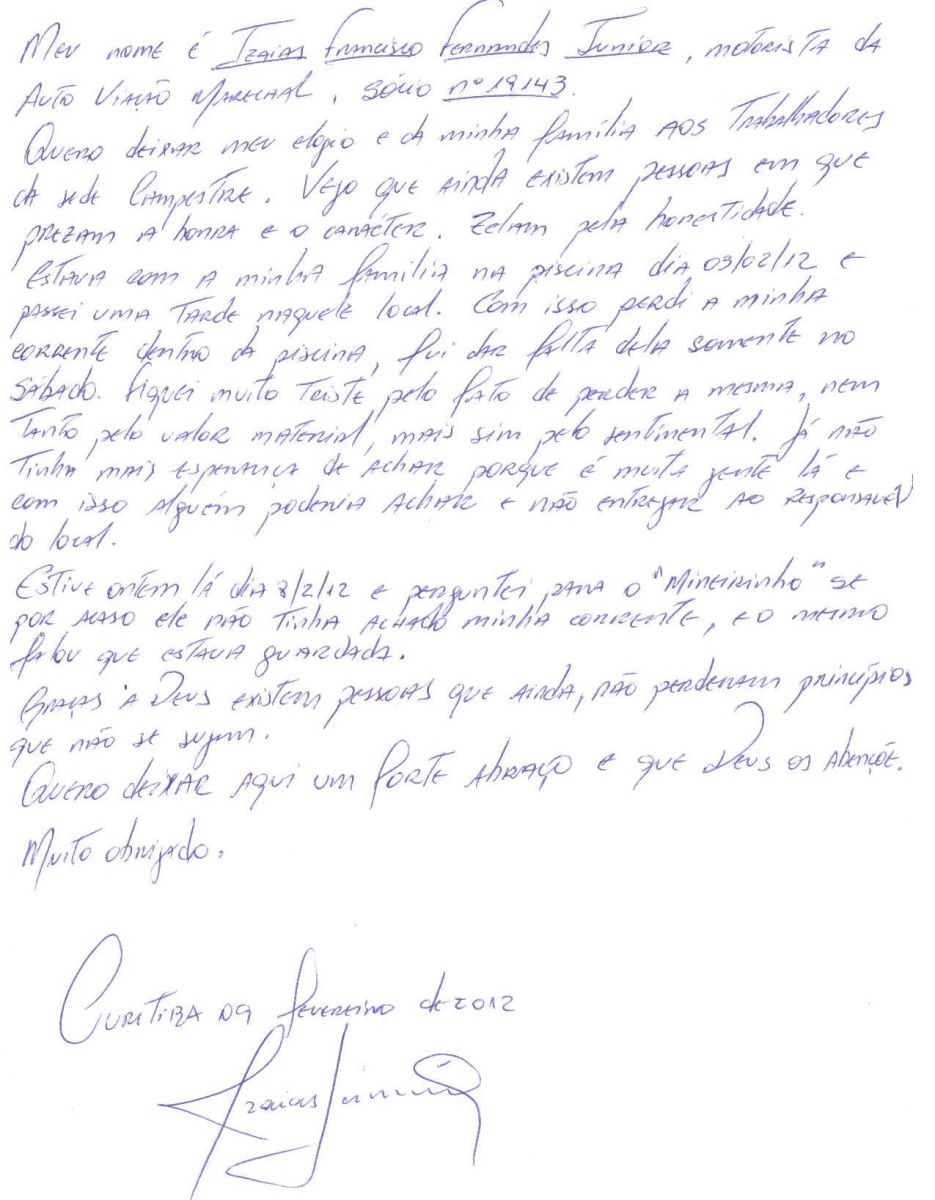 Meu nome é Izaias Francisco Fernandes Junior, motorista da
Auto Viação Marechal, sócio nº 19143.
Quero deixar meu elogio e da minha família aos Trabalhadores
da sede Campestre. Vejo que ainda existem pessoas em que
prezam a honra e o carácter. Zelam pela honestidade.
Estava com a minha família na piscina dia 03/02/12 e
passei uma tarde naquele local. Com isso perdi a minha
corrente dentro da piscina, fui dar falta dela somente no
sábado. Fiquei muito triste pelo fato de perder a mesma, nem
tanto pelo valor material, mais sim pelo sentimental. Já não
tinha mais esperança de achar porque é muita gente lá e
com isso alguém poderia achar e não entregar ao responsável
do local.
Estive ontem lá dia 8/2/12 e perguntei para o "Mineirinho" se
por acaso ele não tinha achado minha corrente, e o mesmo
falou que estava guardada.
Graças a Deus existem pessoas que ainda, não perderam princípios
que não se sujam.
Quero deixar aqui um forte abraço e que Deus os abençõe.
Muito obrigado.
Curitiba 09 fevereiro de 2012
Izaias Junior